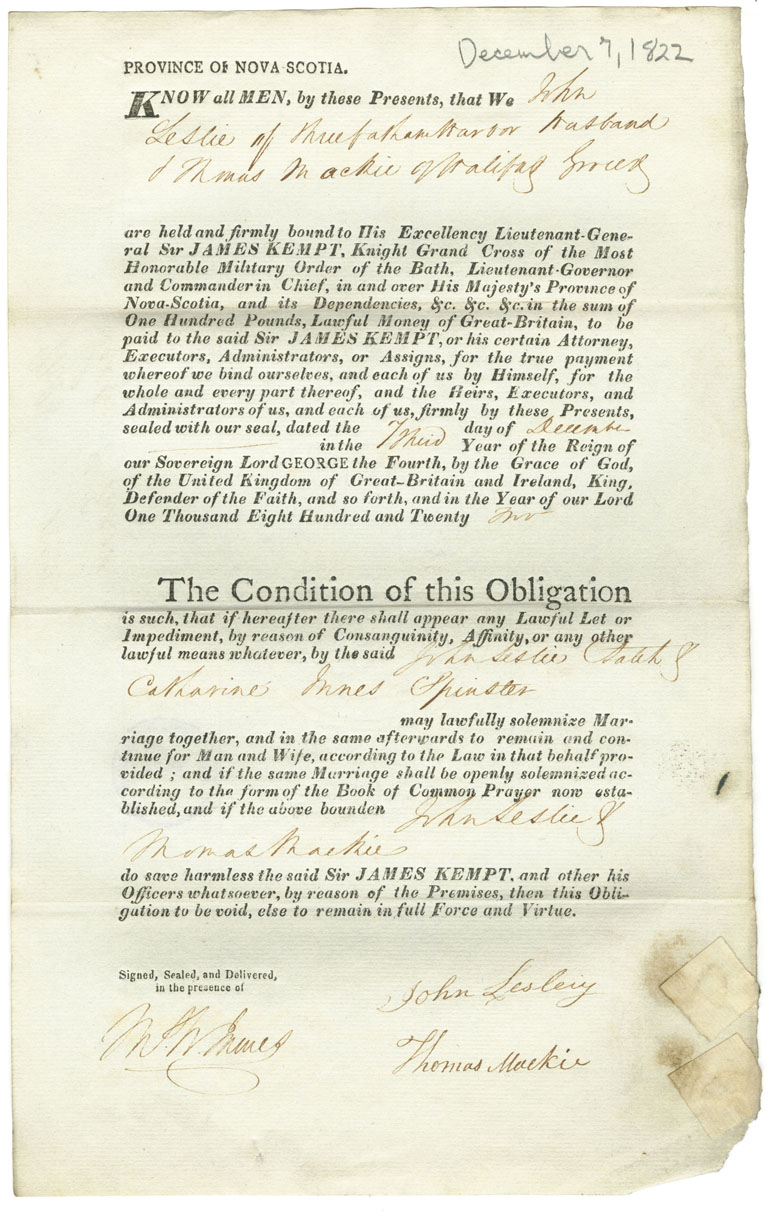 December 7, 1822
PROVINCE OF NOVA SCOTIA.
KNOW all MEN, by these Presents, that We John
Leslie of Threefathom Harbor Husband
& Thomas Mackie of Halifax Grocer
are held and firmly bound to His Excellency Lieutenant-Gene-
ral Sir JAMES KEMPT, Knight Grand Cross of the Most
Honorable Military Order of the Bath, Lieutenant-Governor
and Commander in Chief, in and over His Majesty's Province of
Nova-Scotia, and its Dependencies, &c. &c. &c. in the sum of
One Hundred Pounds, Lawful Money of Great-Britain, to be
paid to the said Sir JAMES KEMPT, or his certain Attorney,
Executors, Administrators, or Assigns, for the true payment
whereof we bind ourselves, and each of us by Himself, for the
whole and every part thereof, and the Heirs, Executors, and
Administrators of us, and each of us, firmly by these Presents,
sealed with our seal, dated the day of December
in the Third Year of the Reign of
our Sovereign Lord GEORGE the Fourth, by the Grace of God,
of the United Kingdom of Great-Britain and Ireland, King,
Defender of the Faith, and so forth, and in the Year of our Lord
One Thousand Eight Hundred and Twenty Two
The Condition of this Obligation
is such, that if hereafter there shall appear any Lawful Let or
Impediment, by reason of Consanguinity, Affinity, or any other
lawful means whatever, by the said John Leslie &
Catharine Innes Spinster
may lawfully solemnize Mar-
riage together, and in the same afterwards to remain and con-
tinue for Man and Wife, according to the Law in that behalf pro-
vided ; and if the same Marriage shall be openly solemnized ac-
cording to the form of the Book of Common Prayer now esta-
blished, and if the above bounden John Leslie &
Thomas Mackie
do save harmless the said Sir JAMES KEMPT, and other his
Officers whatsoever, by reason of the Premises, then this Obli-
gation to be void, else to remain in full Force and Virtue.
Signed, Sealed, and Delivered,
in the presence of
John Lesleiy
Thomas Mackie